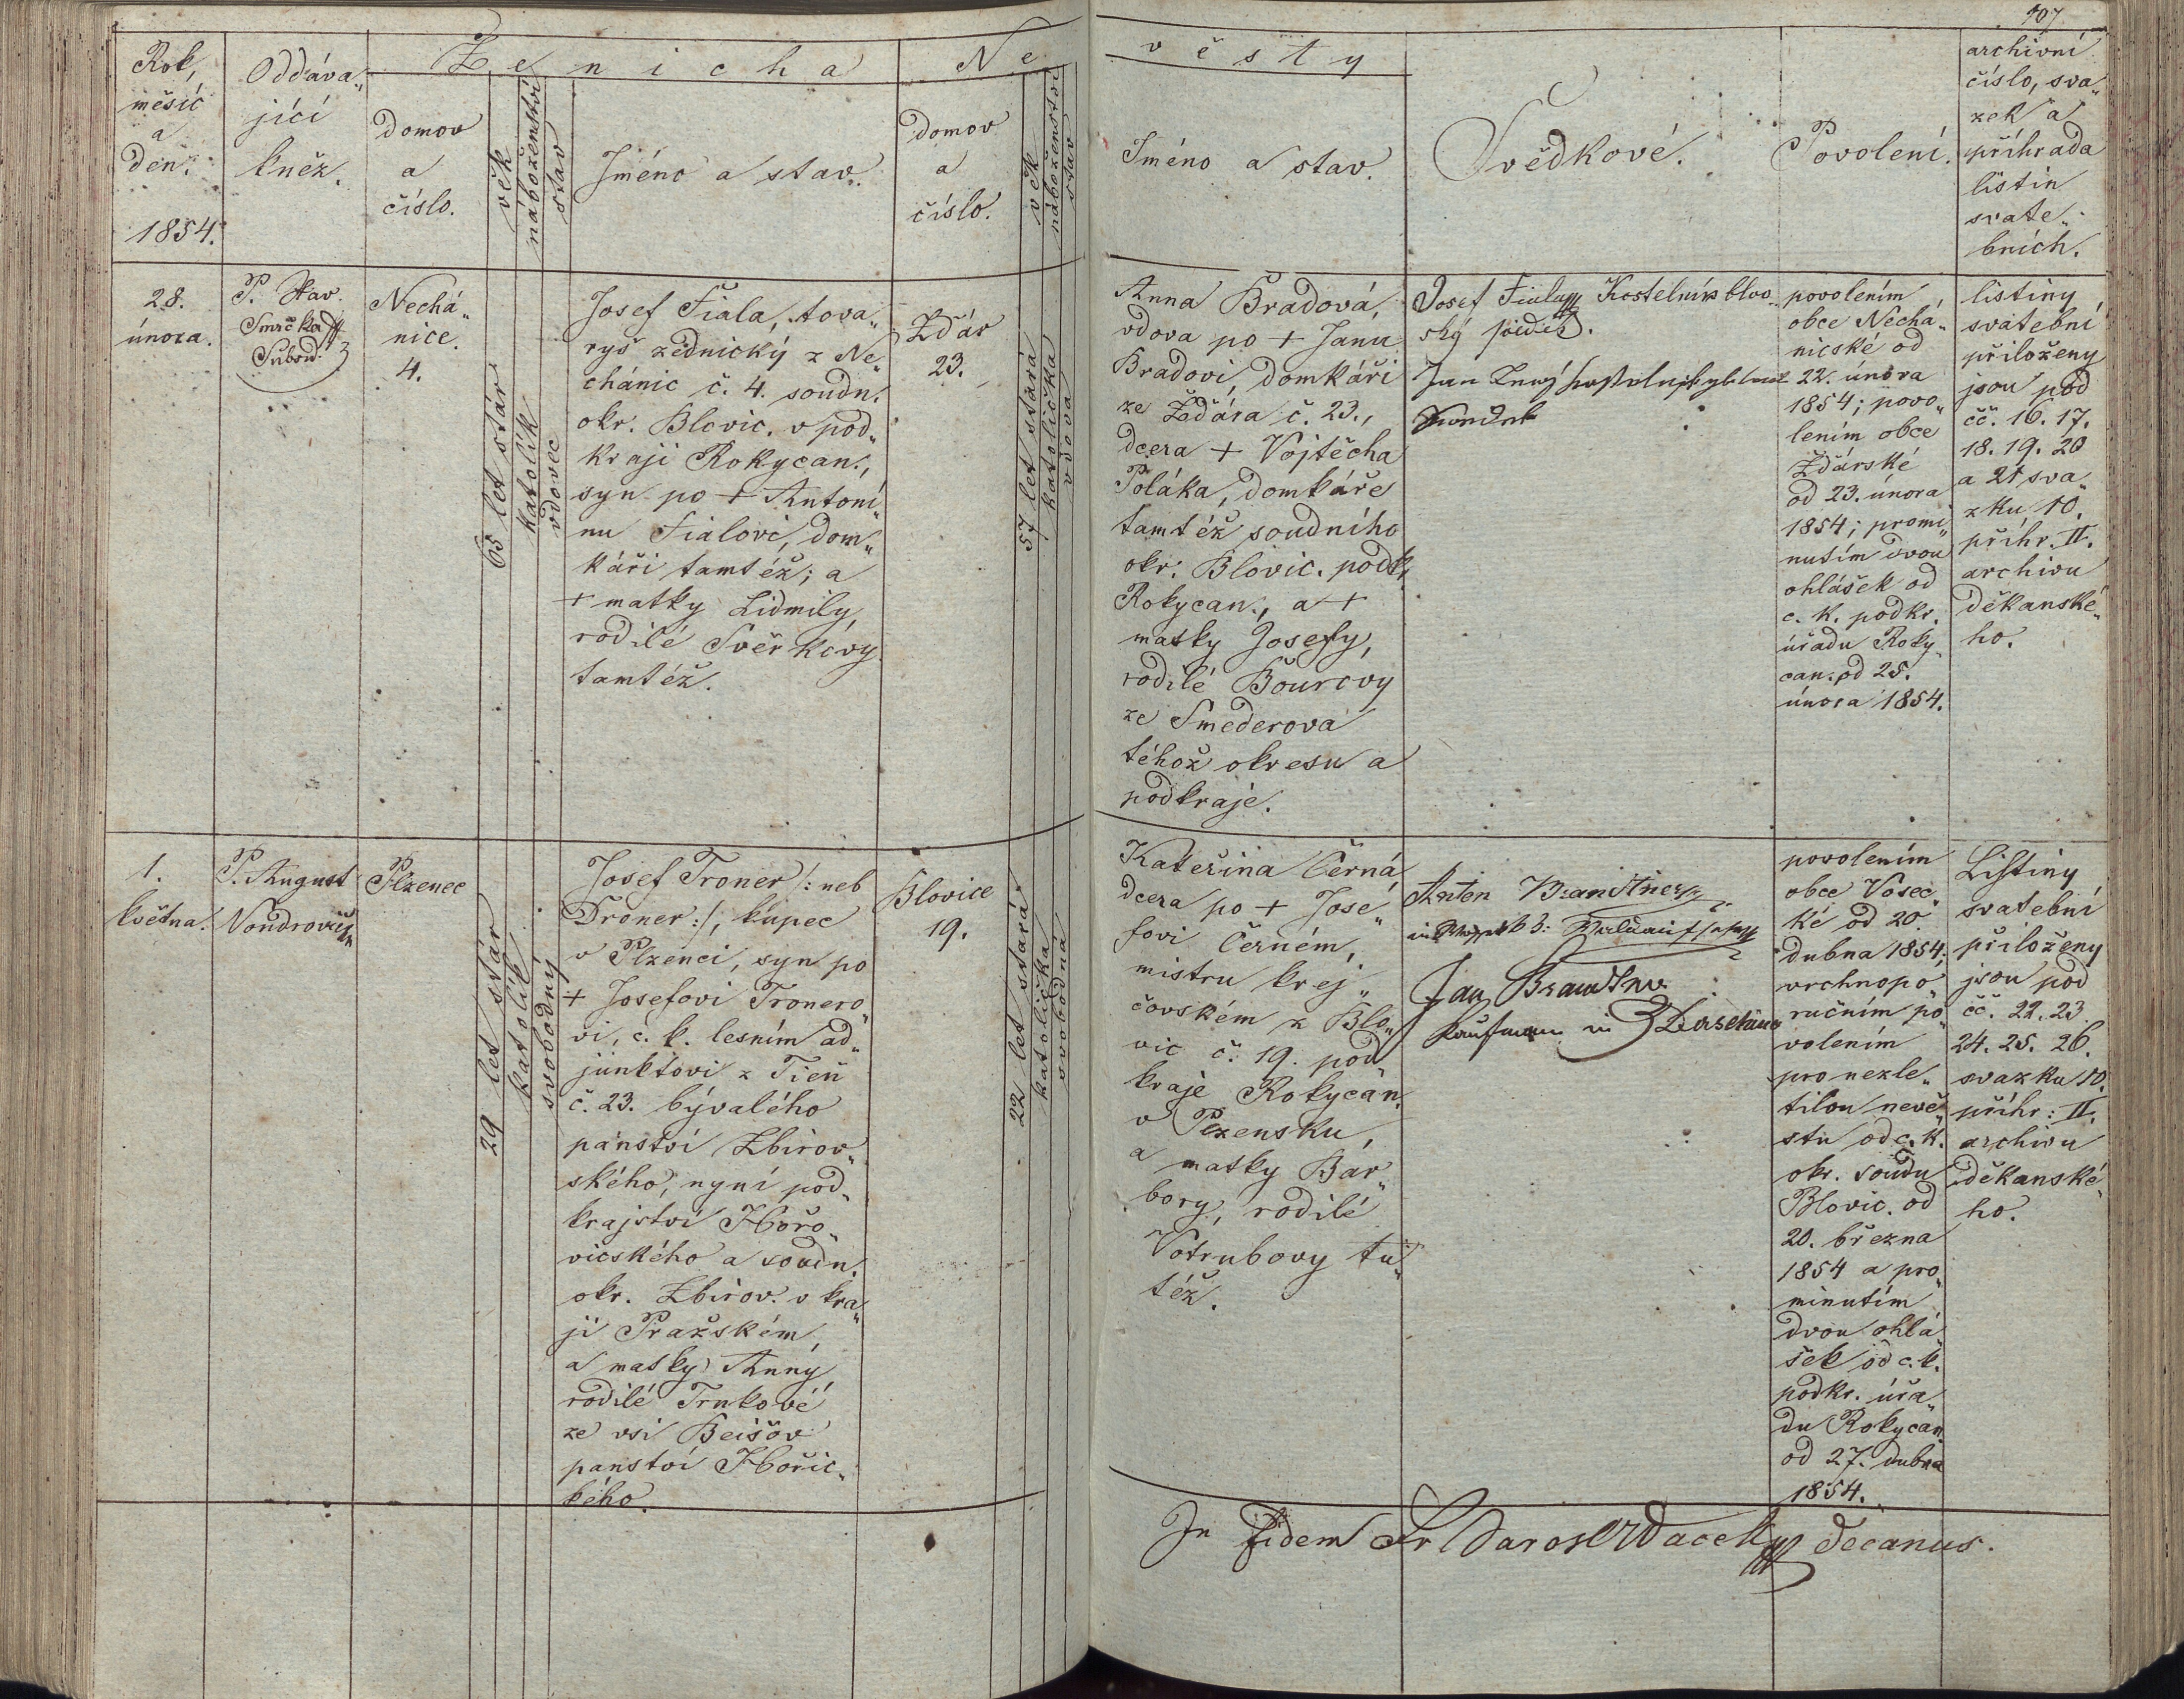 107
Rok,
měsíc
a
den.
1854.
Oddáva„
jící
kněz.
Ženicha
domov
a
číslo.
věk
náboženství
stav
Jméno a stav.
Ne
domov
a
číslo.
věk
náboženství
stav
věsty
Jméno a stav.
Svědkové.
Povolení.
archivní
číslo, sva„
zek a
příhrada
listin
svate„
bních.
28.
února.
P. Stav.
Smrčka
Nechá„
nice.
4.
65 let stár
katolík
vdovec
Josef Fiala, tova„
ryš zednický z Ne„
chánic č. 4. soudn.
okr. Blovic. v pod„
kraji Rokycan.,
syn po + Antoní„
nu Fialovi, dom„
káři tamtéž; a
+ matky Lidmily,
rodilé Svěrkovy
tamtéž.
Ždár
23.
57 let stará
katolička
vdova
Anna Bradová,
vdova po + Janu
Bradovi, domkáři
ze Ždára č. 23.,
dcera + Vojtěcha
Poláka, domkáře
tamtéž soudního
okr. Blovic. podk.
Rokycan., a +
matky Josefy,
rodilé Bourovy
ze Smederova
téhož okresu a
podkraje.
Josef Fiala Kostelník blov„
ský
Jan
povolením
obce Nechá„
nické od
22. února
1854; povo„
lením obce
Žďárské
od 23. února
1854; promi„
nutím dvou
ohlášek od
c. k. podkr.
úřadu Roky„
can. od 25.
února 1854.
listiny
svatební
přiloženy
jsou pod
čč. 16. 17.
18. 19. 20
a 21 sva„
zku 10.
příhr. II.
archivu
děkanské„
ho.
1.
května.
P. August
Vondrovič
Plzenec
29 let stár
katolík
svobodný
Josef Troner /: neb
Droner :/, kupec
v Plzenci, syn po
+ Josefovi Tronero„
vi, c. k. lesním ad„
junktovi z Tień
č. 23. bývalého
panství Zbirov„
ského, nyní pod„
krajství Hořo„
vicského a soudn.
okr. Zbirov. v kra„
ji Pražském,
a matky Anny,
rodilé Trnkové
ze vsi Beišov
panství Hořic„
kého.
Blovice
19.
22 let stará
katolička
svobodná
Kateřina Černá
dcera po + Jose„
fovi Černém,
mistru krej„
čovském z Blo„
vic č. 19. pod„
kraje Rokycan.
v Plzensku,
a matky Bar„
bory, rodilé
Votrubovy tu„
též.
Anton Brandtner
Jan Brandtner
Kaufmann in
povolením
obce Vosec„
ké od 20.
dubna 1854;
vrchnopo„
ručním po„
volením
pro nezle„
tilou nevě„
stu od c. k.
okr. soudu
Blovic. od
20. března
1854 a pro„
minutím
dvou ohlá„
šek od c. k.
podkr. úřa„
du Rokycan.
od 27. dubna
1854.
Listiny
svatební
přiloženy
jsou pod
čč. 22. 23.
24. 25. 26.
svazku 10.
příhr: II.
archivu
děkanské„
ho.
In fidem Fr decanus.